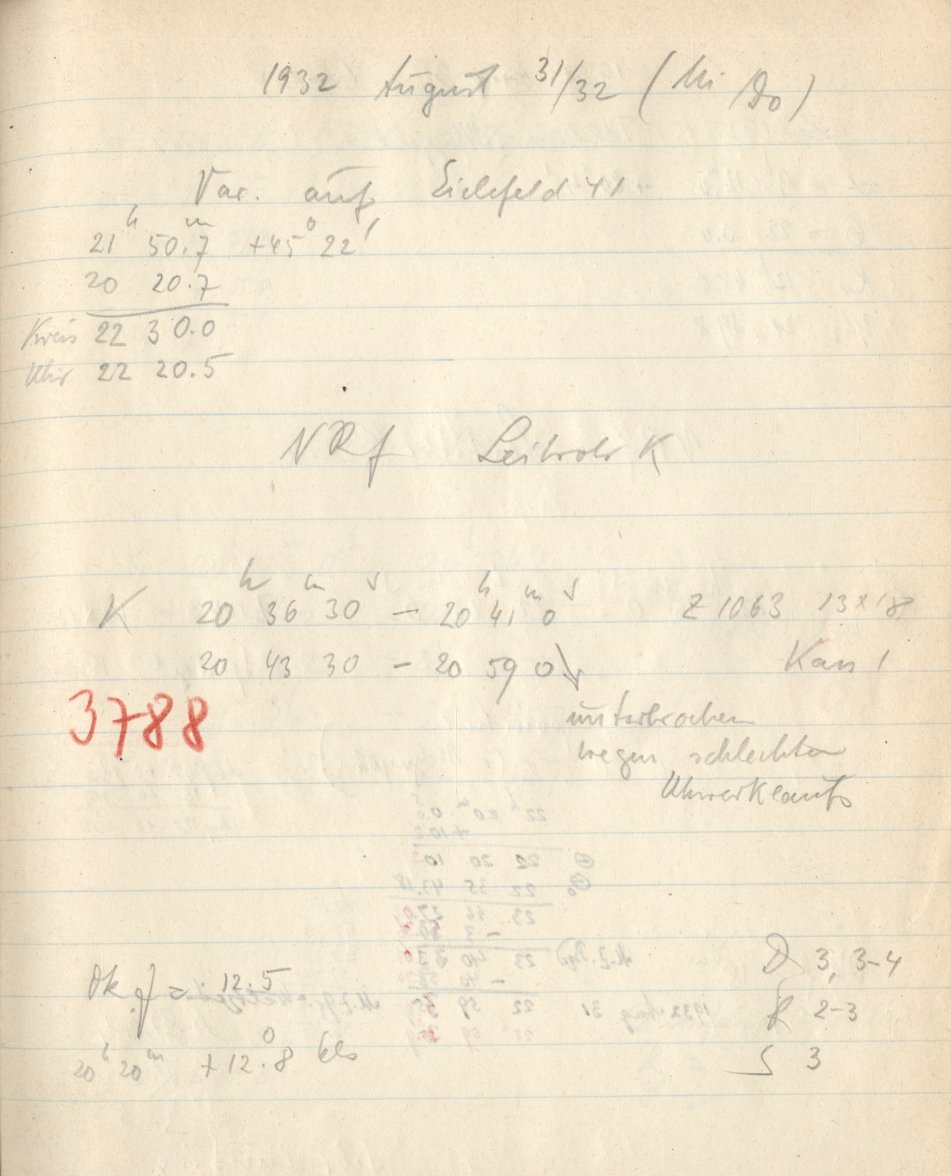 1932 August 31/32 (Mi/Do)
Var. auf Eichfeld 41
21h 50.7m +45° 22'
20 20.7
Kreis 22 30.0
Uhr 22 20.5
NRf Leitrohr K
K 20h 36m 30s – 20h 41m 0s Z 1063 13x18
20 43 30 – 20 59 0 Kas 1
3788
unterbrochen
wegen schlechten
Uhrwerklaufs
D 3, 3-4
Ok f = 12.5
R 2-3
20h 20m +12.8°
S 3